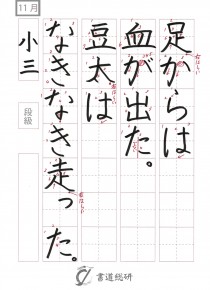 11月
足からは
血が出た。
豆太は
なきなき走った。
小三
段級
書道総研